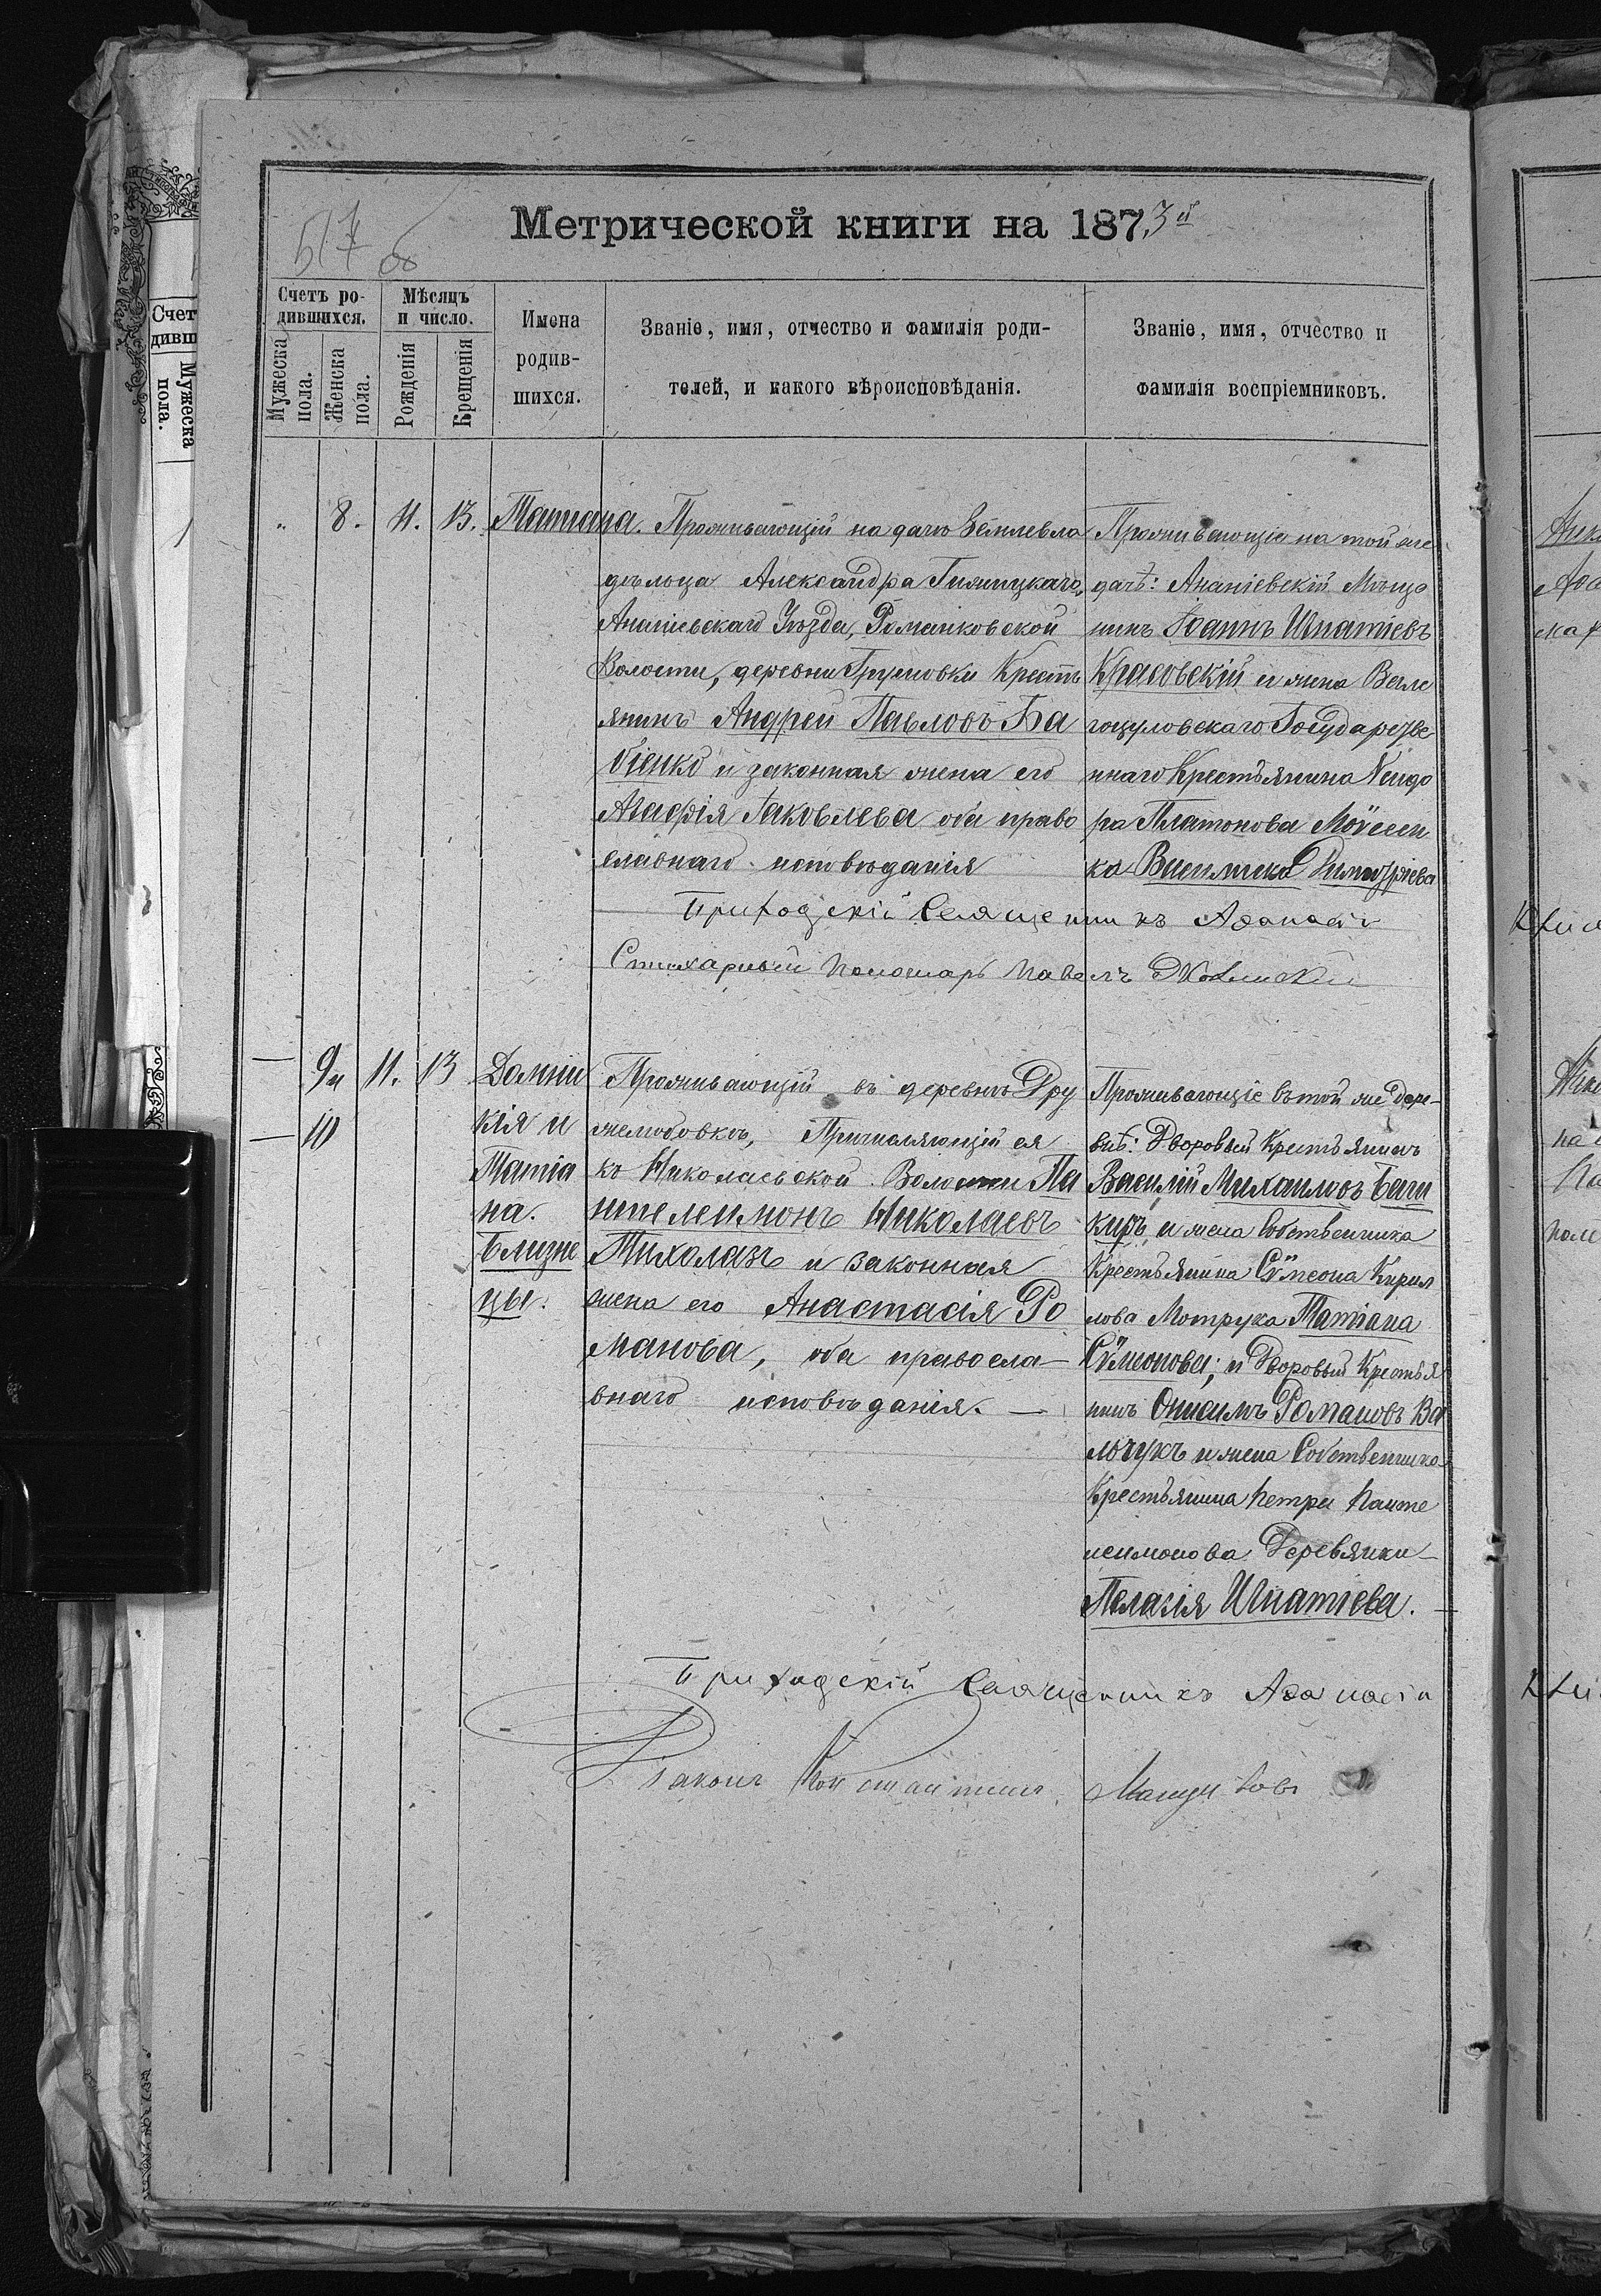 Метрической книги на 1873й
517 об
Счетъ ро-
дившихся.
Мужеска пола.
Женска пола.
Мѣсяцъ
и число.
Рожденія
Крещенія
Имена
родив-
шихся.
Званіе, имя, отчество и фамилія роди-
телей, и какого вѣроисповѣданія.
Званіе, имя, отчество и
фамилія воспріемниковъ.
" 8. 11. 13. Татіана.
Проживающій на дачѣ Землевла
дѣльца Александра
Ананіевскаго Уѣзда, Романковской
Волости, деревни Крестъ
янинъ Андрей Павловъ Ба
біенко и законная жена его
Агафія Іаковлева оба право
славнаго исповѣданія
Проживающіе на той же
дачѣ: Ананіевскій Мѣща
нинъ Іоаннъ Игнатіевъ
Красовскій и жена Вале
гоцуловскаго Государстве
ннаго Крестьянина
ра Платонова Моѵсеен
ка Василиса Димитріева
Приходскій Священникъ Аѳанасій
Стихарный Пономарь Павелъ
— 9и 11. 13
— 10
Домни
кія и
Татіа
на.
Близне
цы.
Проживающій въ деревнѣ Дру
желюбовкѣ, Причисляющійся
къ Николаевской Волости Па
нтелеимонъ Николаевъ
Михолазъ и законная
жена его Анастасія Ро
манова, оба правосла-
внаго исповѣданія. —
Проживающіе въ той же дере-
внѣ: Дворовый Крестьянинъ
Василій Михаиловъ Баш
киръ и жена Собственника
Крестьянина Сѵмеона Кирил
лова Мотрука Татіана
Сѵмеонова; и Дворовый Крестья
нинъ Онисимъ Романовъ Ва
льчукъ и жена Собственника
Крестьянина Петра Панте
леимонова Деревянки
Пелагія Игнатіева. —
Приходскій Священникъ Аѳанасій
Діаконъ Константинъ